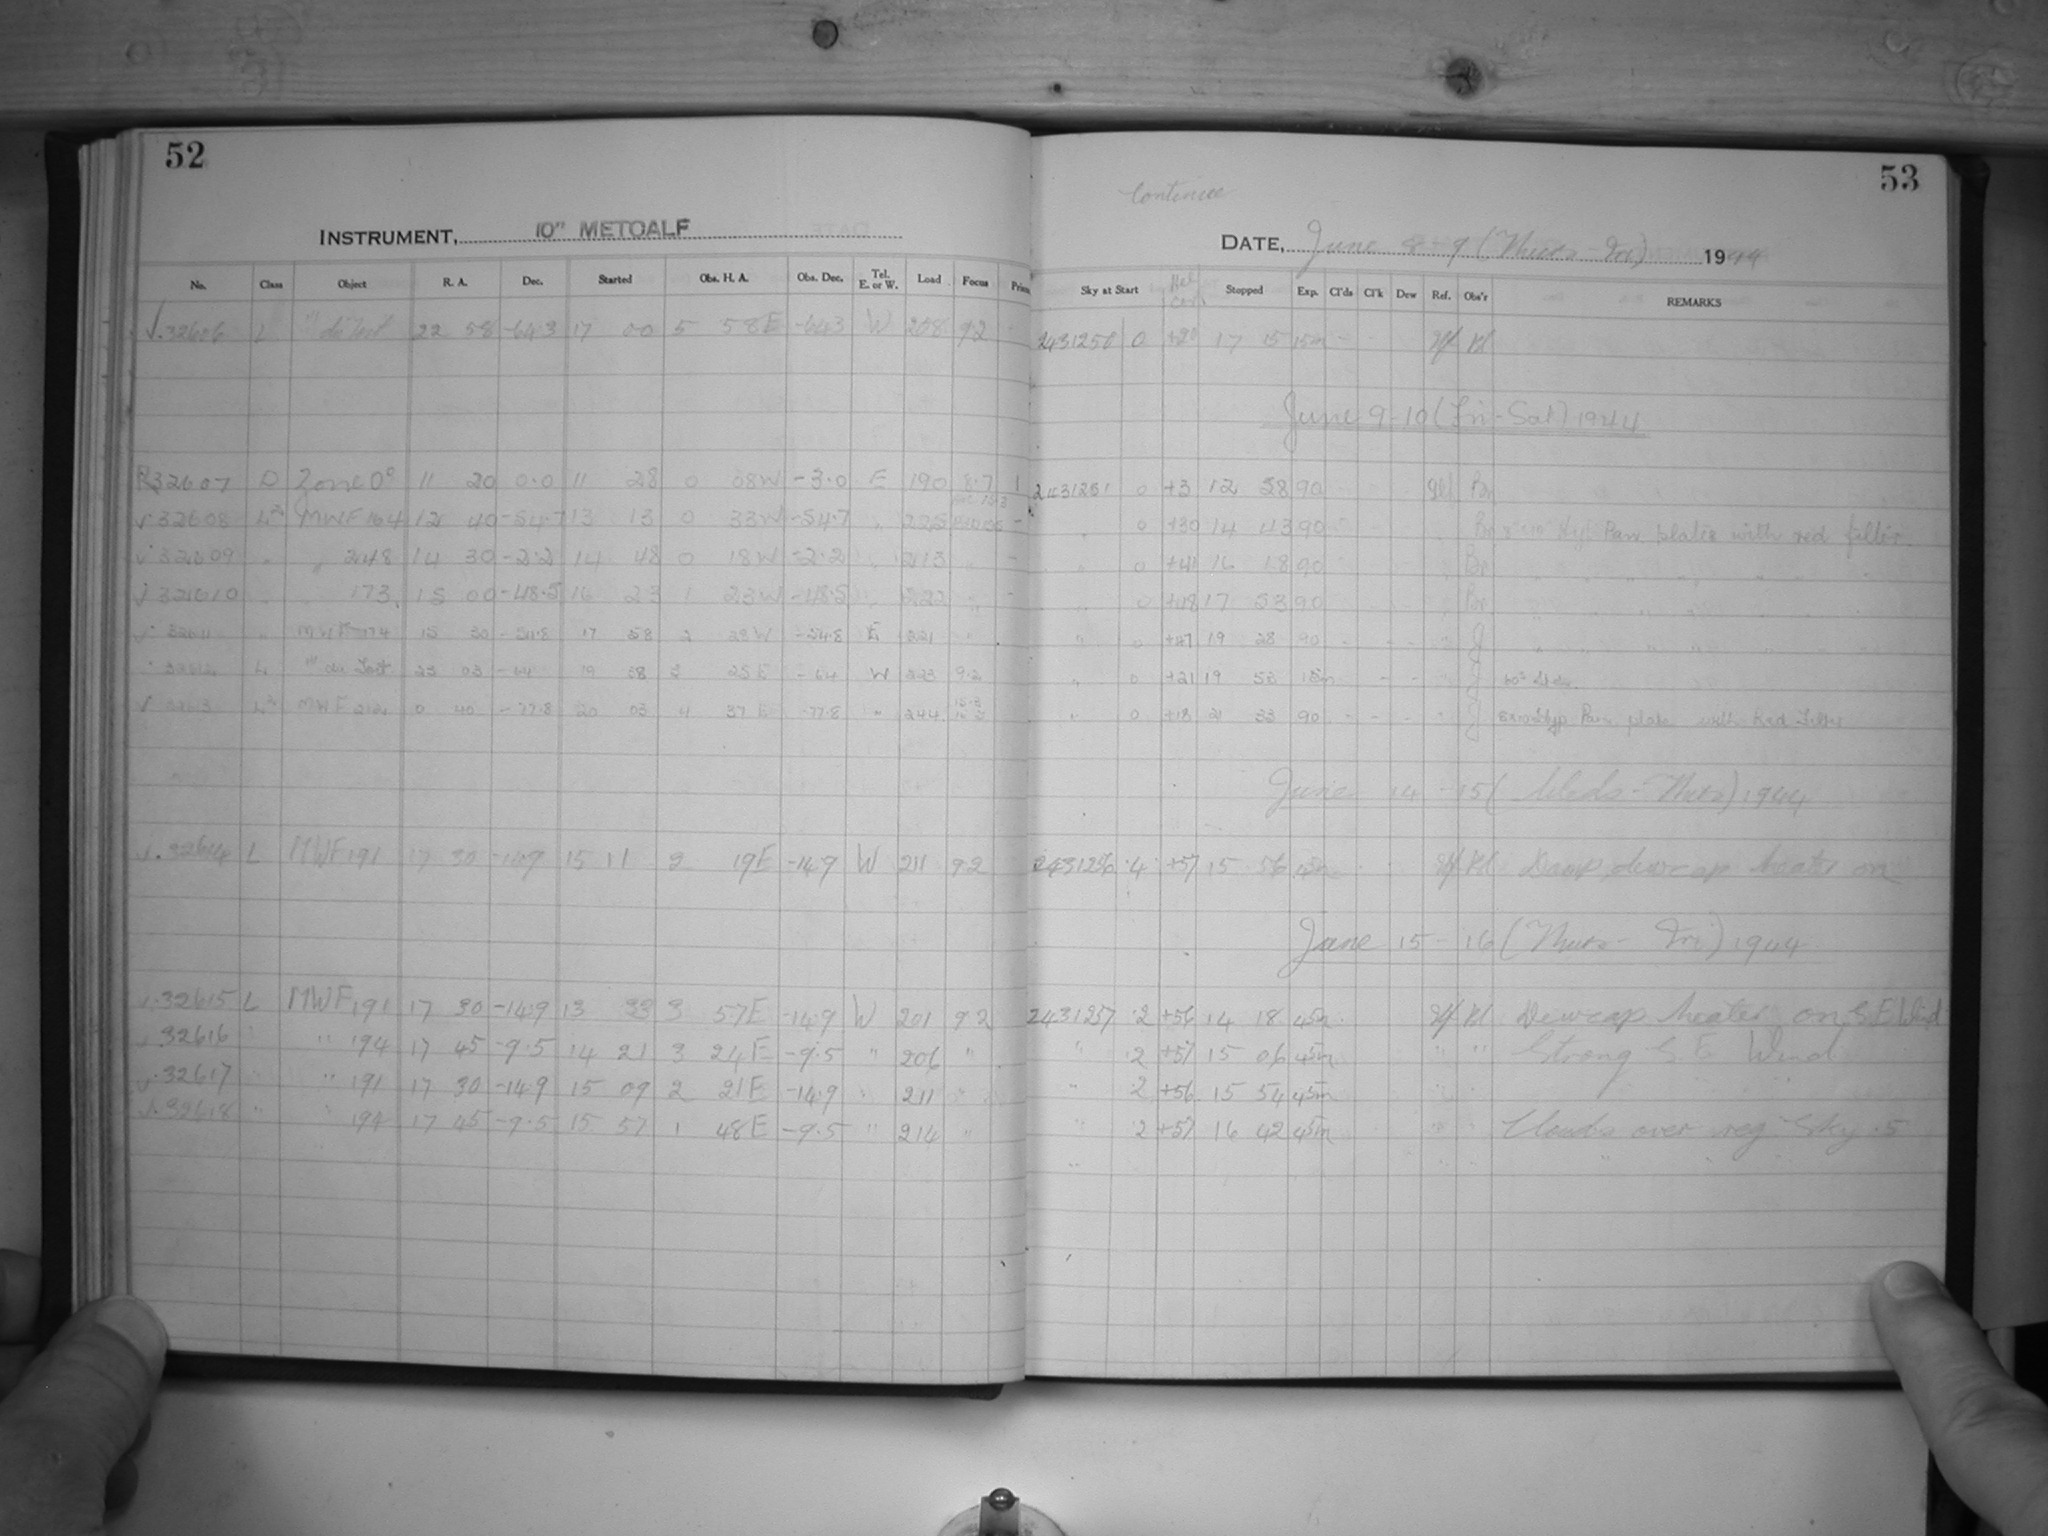 52
INSTRUMENT, 10" METCALF
No. Class Object R. A. Dec. Started Obs. H. A. Obs. Dec. Tel. E. or W. Load Focus Prism
32606 L 22 58 -64.3 17 00 5 58E -64.3 W 208 9.2
32607 D Zone 0° 11 20 0.0 11 28 0 08W -3.0 E 190 8.7 1
32608 MWF 164 12 40 -54.7 13 13 0 33W -54.7 " 225 -
32609 " " 248 14 30 -2.2 14 48 0 18W -2.2 " 213 " -
32610 " " 173 15 00 -48.5 16 23 1 23W -48.5 " 222 " -
32611 " MWF 174 15 30 -54.8 17 58 2 28W -54.8 E 221 "
L 23 03 -64 19 38 25E -64 W 223 9.2
MWF 212 0 40 -77.8 20 03 4 37E -77.8 " 244
32614 L MWF 191 17 30 -14.9 15 11 2 19E -14.9 W 211 9.2
32615 L MWF 191 17 30 -14.9 13 33 3 57E -14.9 W 201 9.2
32616 " " 194 17 45 -9.5 14 21 3 24E -9.5 " 206 "
32617 " " 191 17 30 -14.9 15 09 2 21E -14.9 " 211 "
32618 " " 194 17 45 -9.5 15 57 1 48E -9.5 " 214 "
53
Continued
DATE, June 8-9 (Thurs-Fri) 1944
Sky at Start Stopped Exp. Cl'ds Cl'k Dew Ref. Obs'r REMARKS
2431250 0 +20 17 15 15m
June 9-10 (Fri-Sat) 1944
2431251 0 +3 12 58 90 Br
" 0 +30 14 43 90 Br Pan plates with red filter.
" 0 +41 16 18 90 Br " " " " " "
" 0 +48 17 53 90 Br " " " " " "
" 0 +47 19 28 90 J " " " " " "
" 0 +21 19 53 15m J
" 0 +18 21 33 90 J 8x10 Hyp Pan plate with Red Filter
June 14-15 (Weds-Thurs) 1944
2431256 .4 +57 15 56 45m Damp, dewcap heater on
June 15-16 (Thurs-Fri) 1944
2431257 .2 +56 14 18 45m Dewcap heater on, S.E Wind
" .2 +57 15 06 45m " " Strong S.E Wind
" .2 +56 15 54 45m " "
" .2 +57 16 42 45m " " Clouds over reg. Sky .5